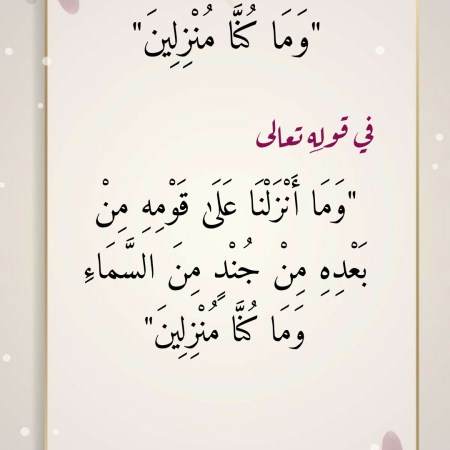 "وَمَا كُنَّا مُنْزِلِينَ"
في قولِهِ تعالى
"وَمَا أَنْزَلْنَا عَلَىٰ قَوْمِهِ مِنْ
بَعْدِهِ مِنْ جُنْدٍ مِنَ السَّمَاءِ
وَمَا كُنَّا مُنْزِلِينَ"